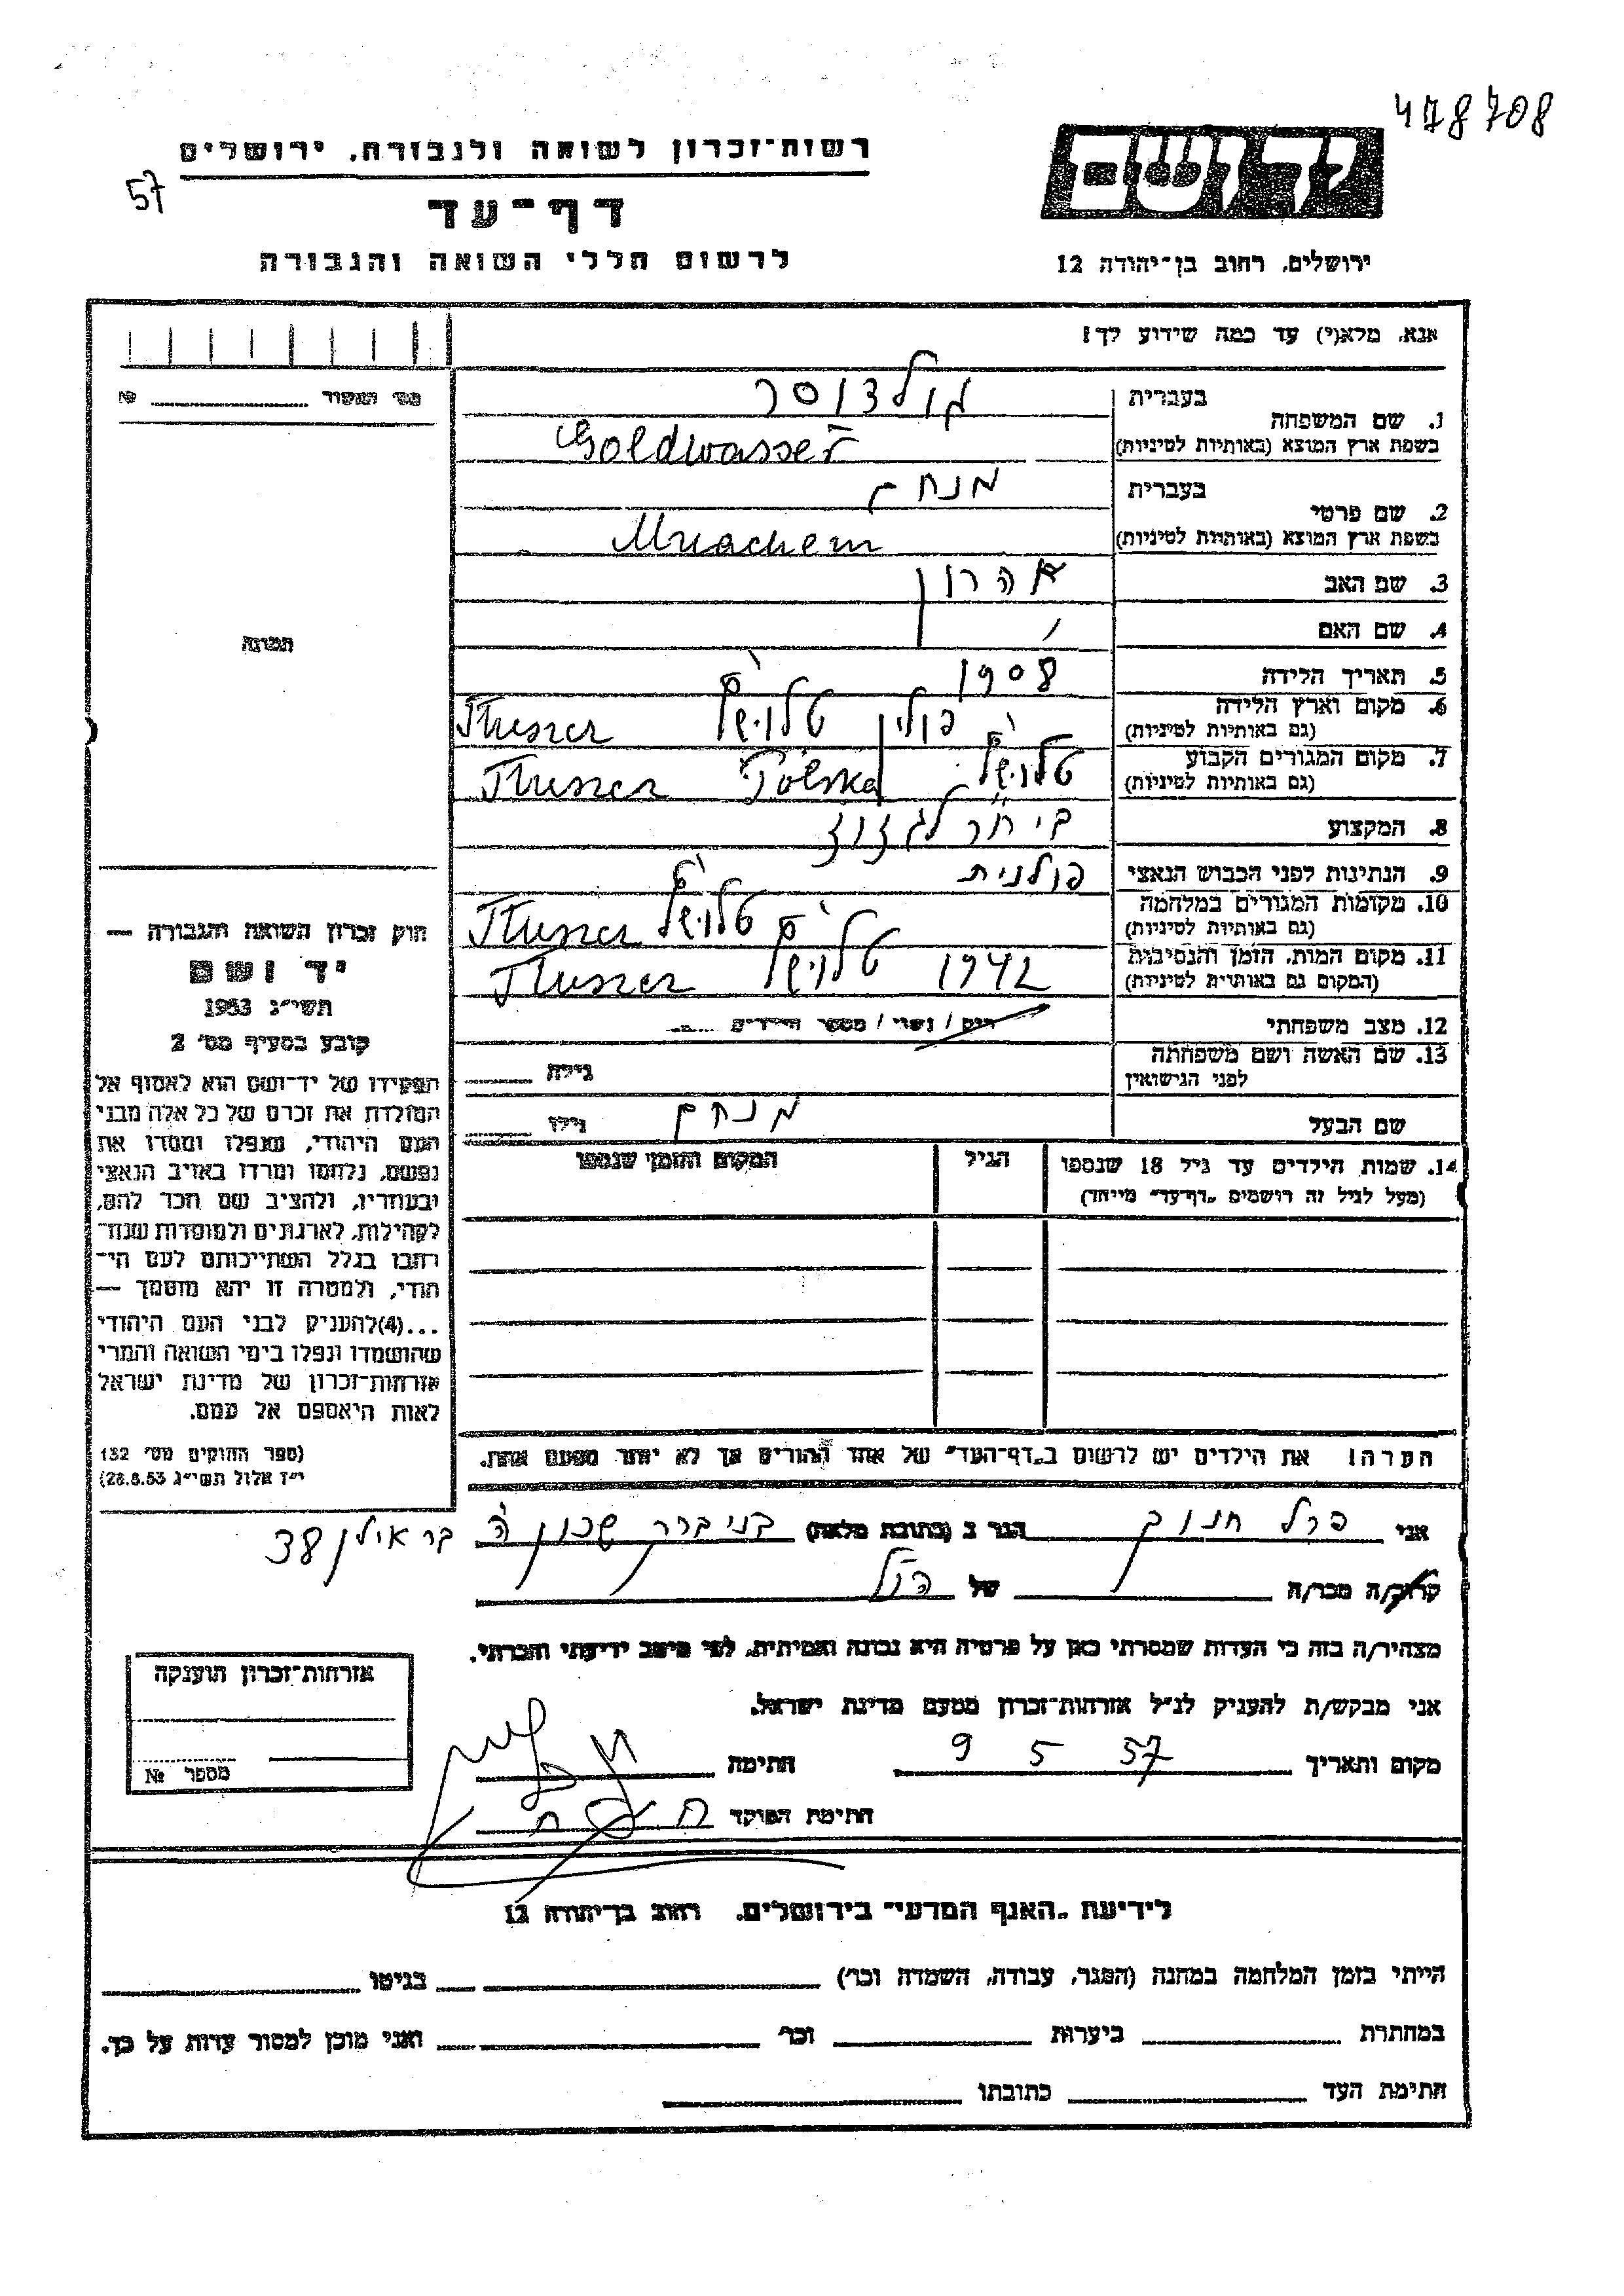 478708
רשות־זכרון לשואה ולגבורה, ירושלים
57
דף־עד
לרשום חללי השואה והגבורה
יד ושם
ירושלים, רחוב בן־יהודה 12
אנא, מלא(י) עד כמה שידוע לך!
מס׳ האשור № 
1. שם המשפחה בעברית גולדוסר
בשפת ארץ המוצא (באותיות לטיניות) Goldwasser
2. שם פרטי בעברית מנחם
בשפת ארץ המוצא (באותיות לטיניות)
3. שם האב אהרון
4. שם האם
5. תאריך הלידה 1908
6. מקום וארץ הלידה פולין
(גם באותיות לטיניות)
7. מקום המגורים הקבוע Polska
(גם באותיות לטיניות)
8. המקצוע
9. הנתינות לפני הכבוש הנאצי פולנית
10. מקומות המגורים במלחמה
(גם באותיות לטיניות)
11. מקום המות, הזמן והנסיבות 1942
(המקום גם באותיות לטיניות)
12. מצב משפחתי רוק / נשוי / מספר הילדים
13. שם האשה ושם משפחתה
לפני הנישואין גילה
שם הבעל מנחם גילו
14. שמות הילדים עד גיל 18 שנספו הגיל המקום והזמן שנספו
(מעל לגיל זה רושמים „דף־עד״ מיוחד)
תמונה
חוק זכרון השואה והגבורה —
יד ושם
תשי״ג 1953
קובע בסעיף מס׳ 2
תפקידו של יד־ושם הוא לאסוף אל
המולדת את זכרם של כל אלה מבני
העם היהודי, שנפלו ומסרו את
נפשם, נלחמו ומרדו באויב הנאצי
ובעוזריו, ולהציב שם וזכר להם,
לקהילות, לארגונים ולמוסדות שנח־
רבו בגלל השתייכותם לעם הי־
הודי, ולמטרה זו יהא מוסמך —
...(4)להעניק לבני העם היהודי
שהושמדו ונפלו בימי השואה והמרי
אזרחות־זכרון של מדינת ישראל
לאות היאספם אל עמם.
(ספר החוקים מס׳ 132
י״ז אלול תשי״ג 28.8.53)
הערה! את הילדים יש לרשום ב„דף־העד״ של אחד ההורים אך לא יותר מפעם אחת.
אני פרל חנוך הגר ב (כתובת מלאה) בני ברק שכון ה בר אילן 38
קרוב/ה מכר/ה של הנ״ל
מצהיר/ה בזה כי העדות שמסרתי כאן על פרטיה היא נכונה ואמיתית, לפי מיטב ידיעתי והכרתי.
אני מבקש/ת להעניק לנ״ל אזרחות־זכרון מטעם מדינת ישראל.
מקום ותאריך 9 5 57 חתימה
חתימת הפוקד
אזרחות־זכרון הוענקה
מספר №
לידיעת „האגף המדעי״ בירושלים, רחוב בן־יהודה 12
הייתי בזמן המלחמה במחנה (הסגר, עבודה, השמדה וכו׳) בגיטו
במחתרת ביערות וכו׳ ואני מוכן למסור עדות על כך.
חתימת העד כתובתו